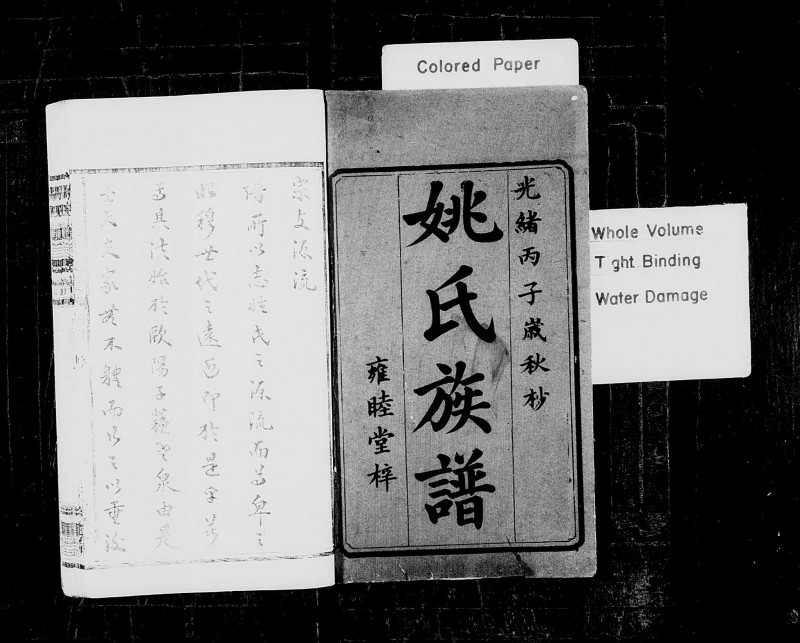 Colored Paper
Whole Volume
T ght Binding
Water Damage
光緒丙子歲秋杪
姚氏族譜
雍睦堂梓
宗文源流
所以志姓氏之源流而尊卑之
昭穆世代之遠近即於是乎
其法始於歐陽子蘇老泉由是
士大夫家無不體而行之以垂後